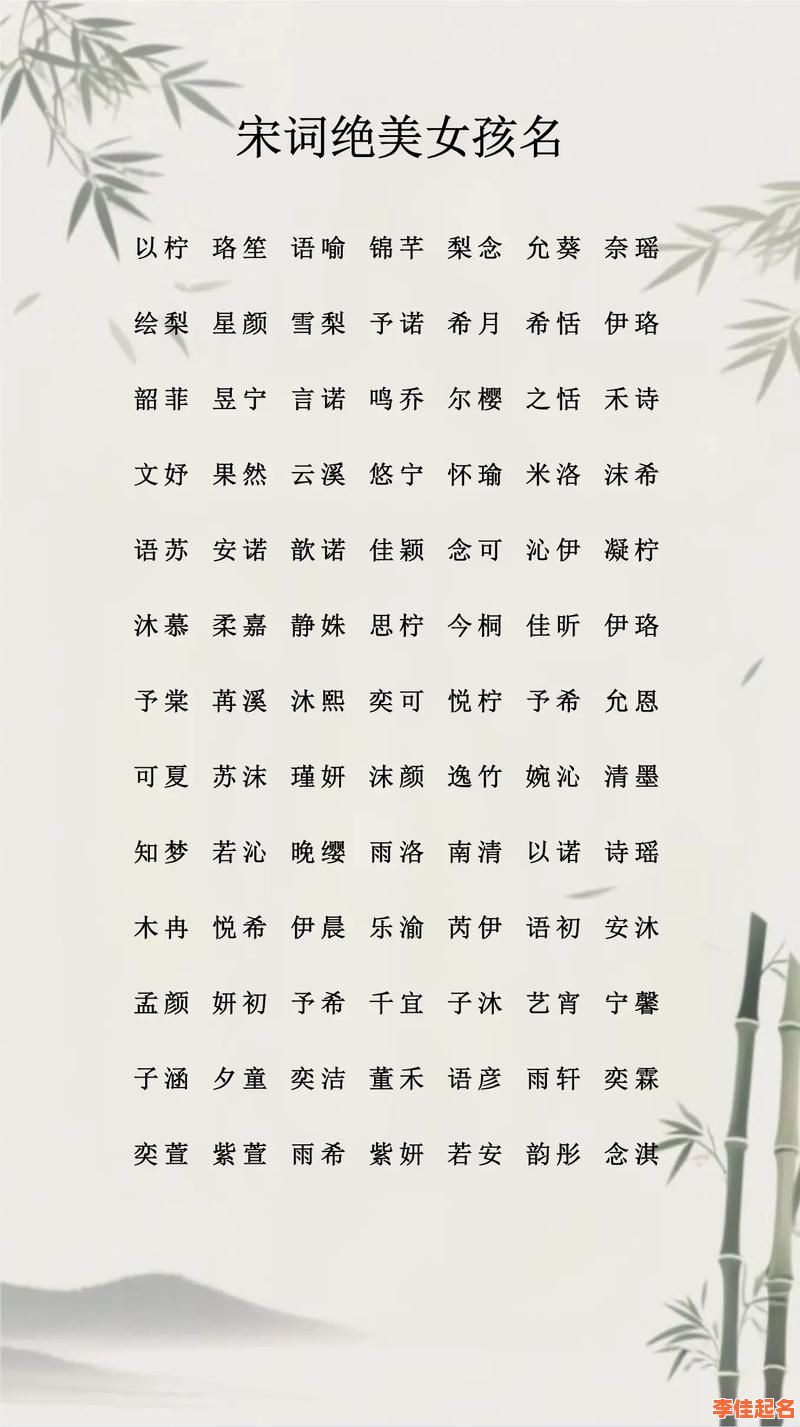 宋词绝美女孩名
以柠 珞笙 语喻 锦芊 梨念 允葵 奈瑶
绘梨 星颜 雪梨 予诺 希月 希恬 伊珞
韶菲 昱宁 言诺 鸣乔 尔樱 之恬 禾诗
文妤 果然 云溪 悠宁 怀瑜 米洛 沫希
语苏 安诺 歆诺 佳颖 念可 沁伊 凝柠
沐慕 柔嘉 静姝 思柠 今桐 佳昕 伊珞
予棠 苒溪 沐熙 奕可 悦柠 予希 允恩
可夏 苏沫 瑾妍 沫颜 逸竹 婉沁 清墨
知梦 若沁 晚缨 雨洛 南清 以诺 诗瑶
木冉 悦希 伊晨 乐渝 芮伊 语初 安沐
孟颜 妍初 予希 千宜 子沐 艺宵 宁馨
子涵 夕童 奕洁 董禾 语彦 雨轩 奕霖
奕萱 紫萱 雨希 紫妍 若安 韵彤 念淇
李佳起名